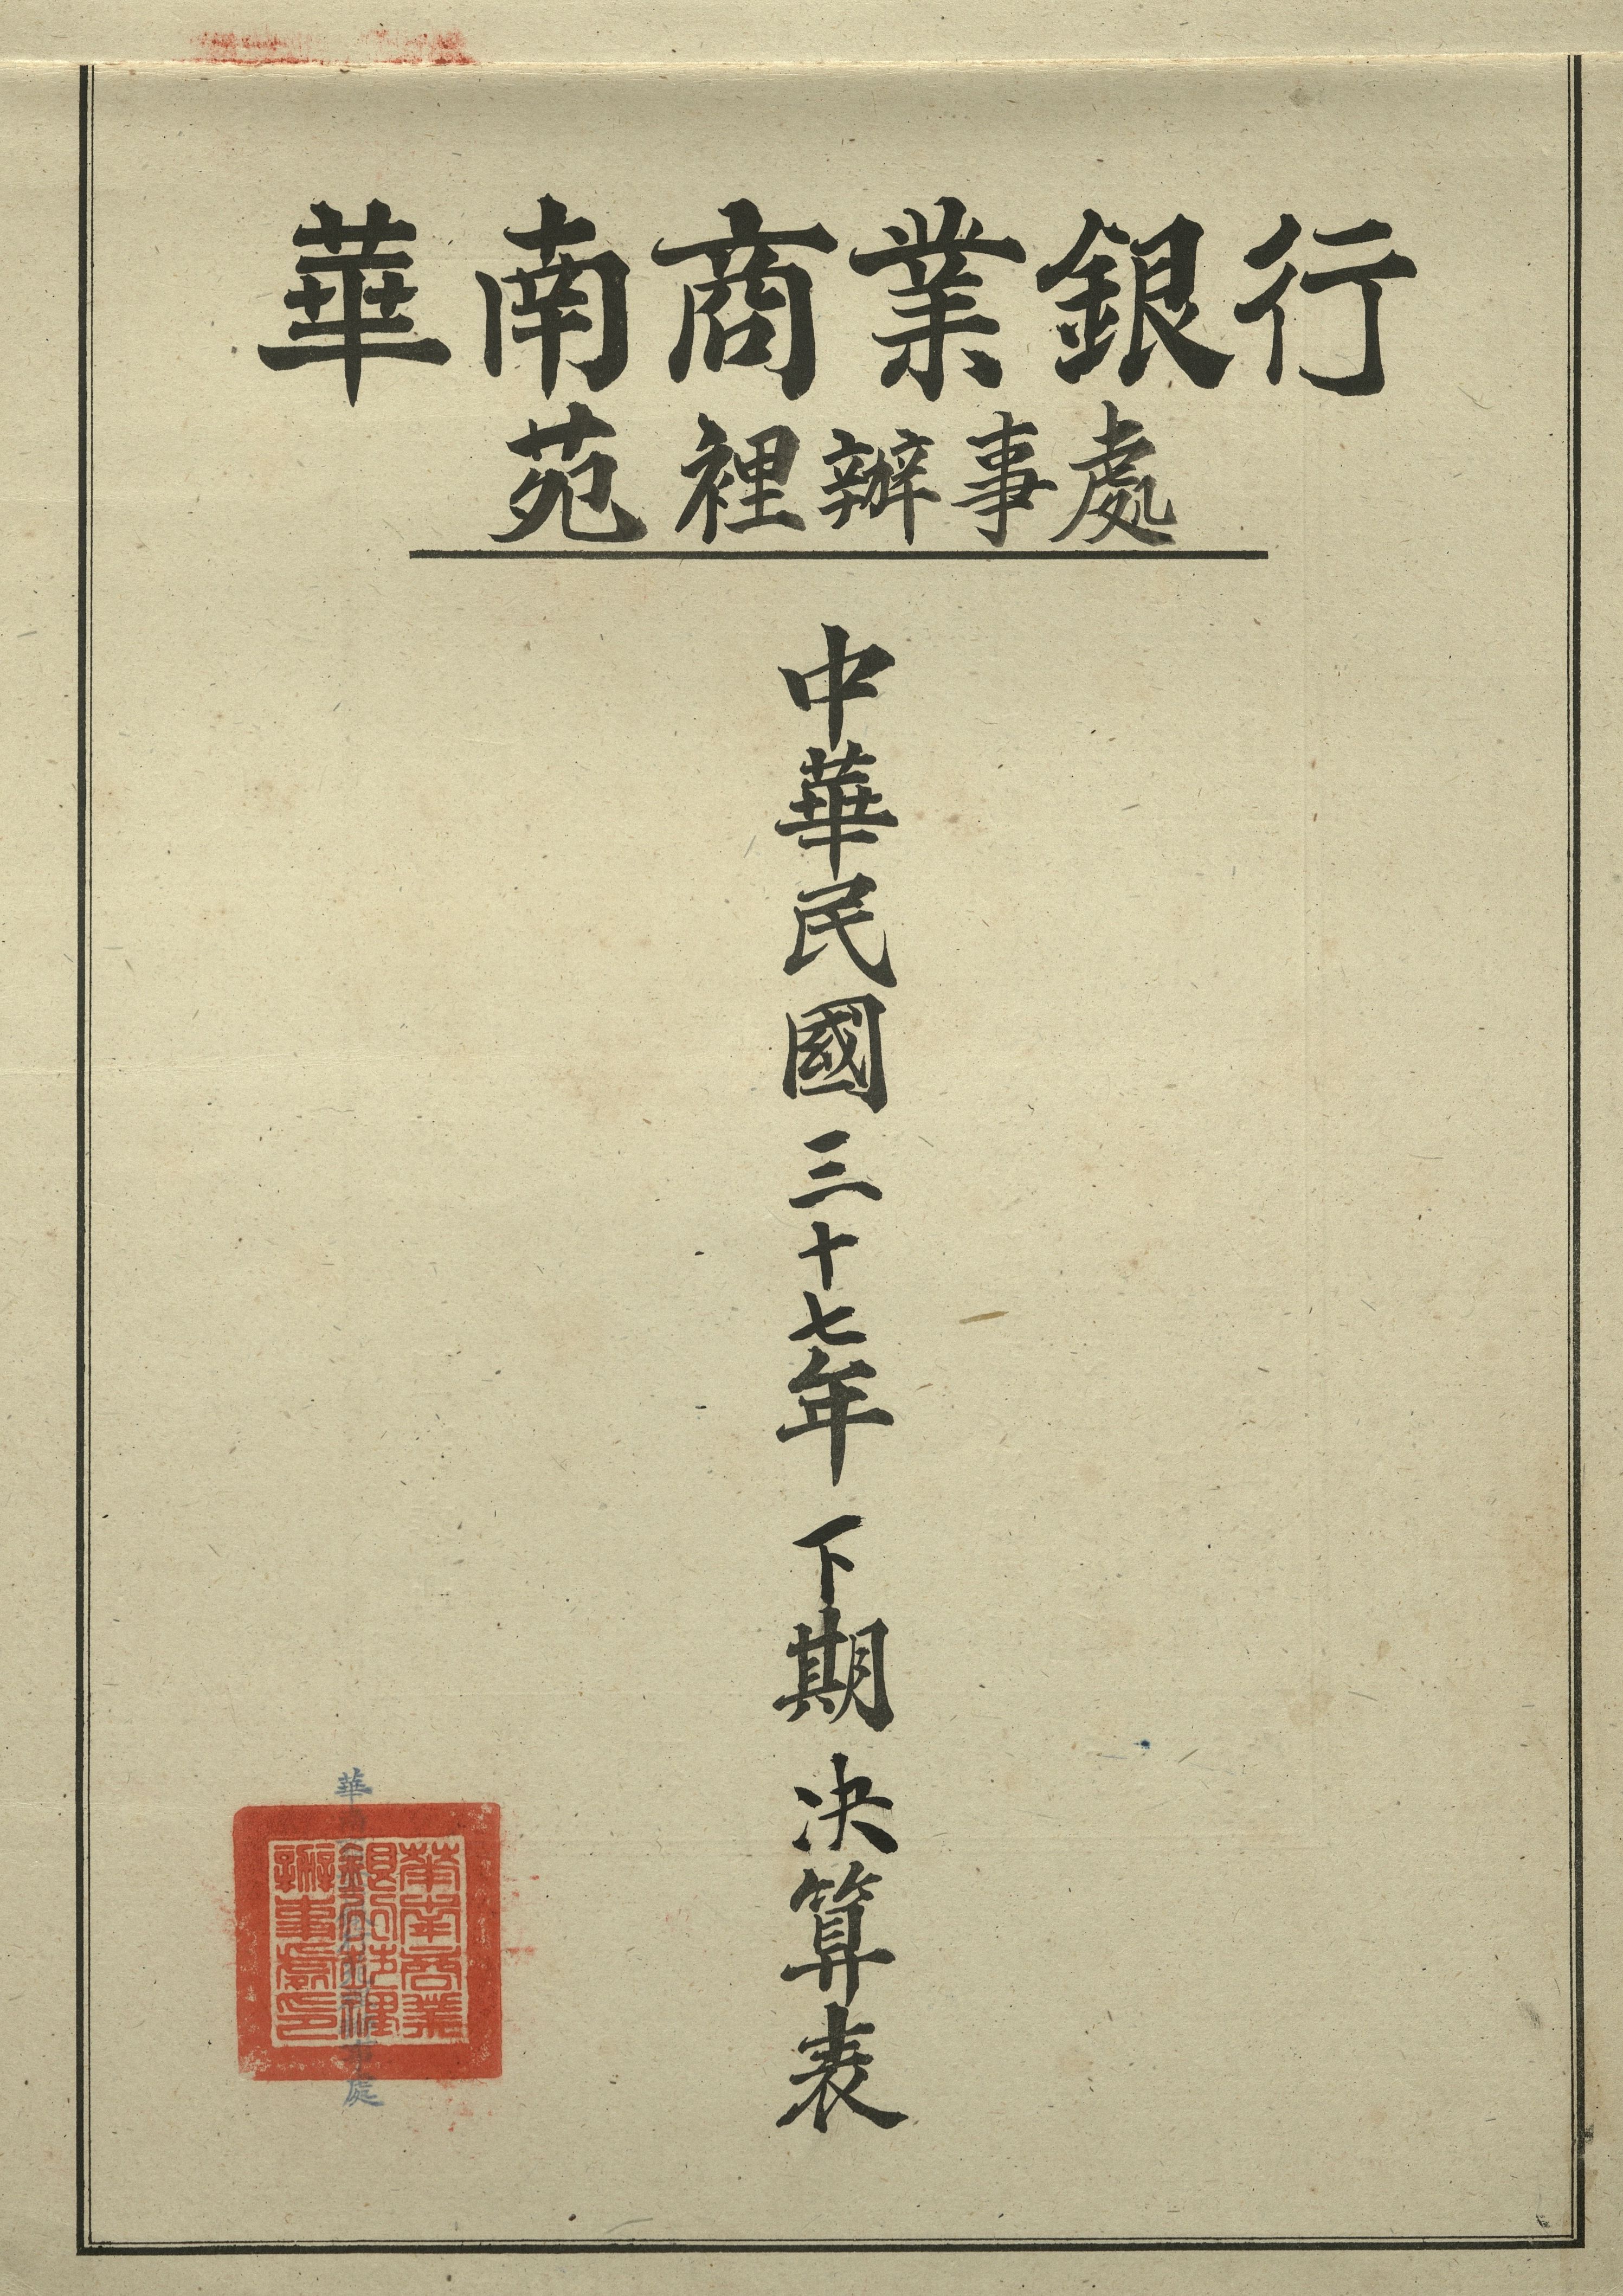 華南商業銀行
苑裡辦事處
中華民國三十七年下期決算表
華南商業
銀行苑裡
辦事處印